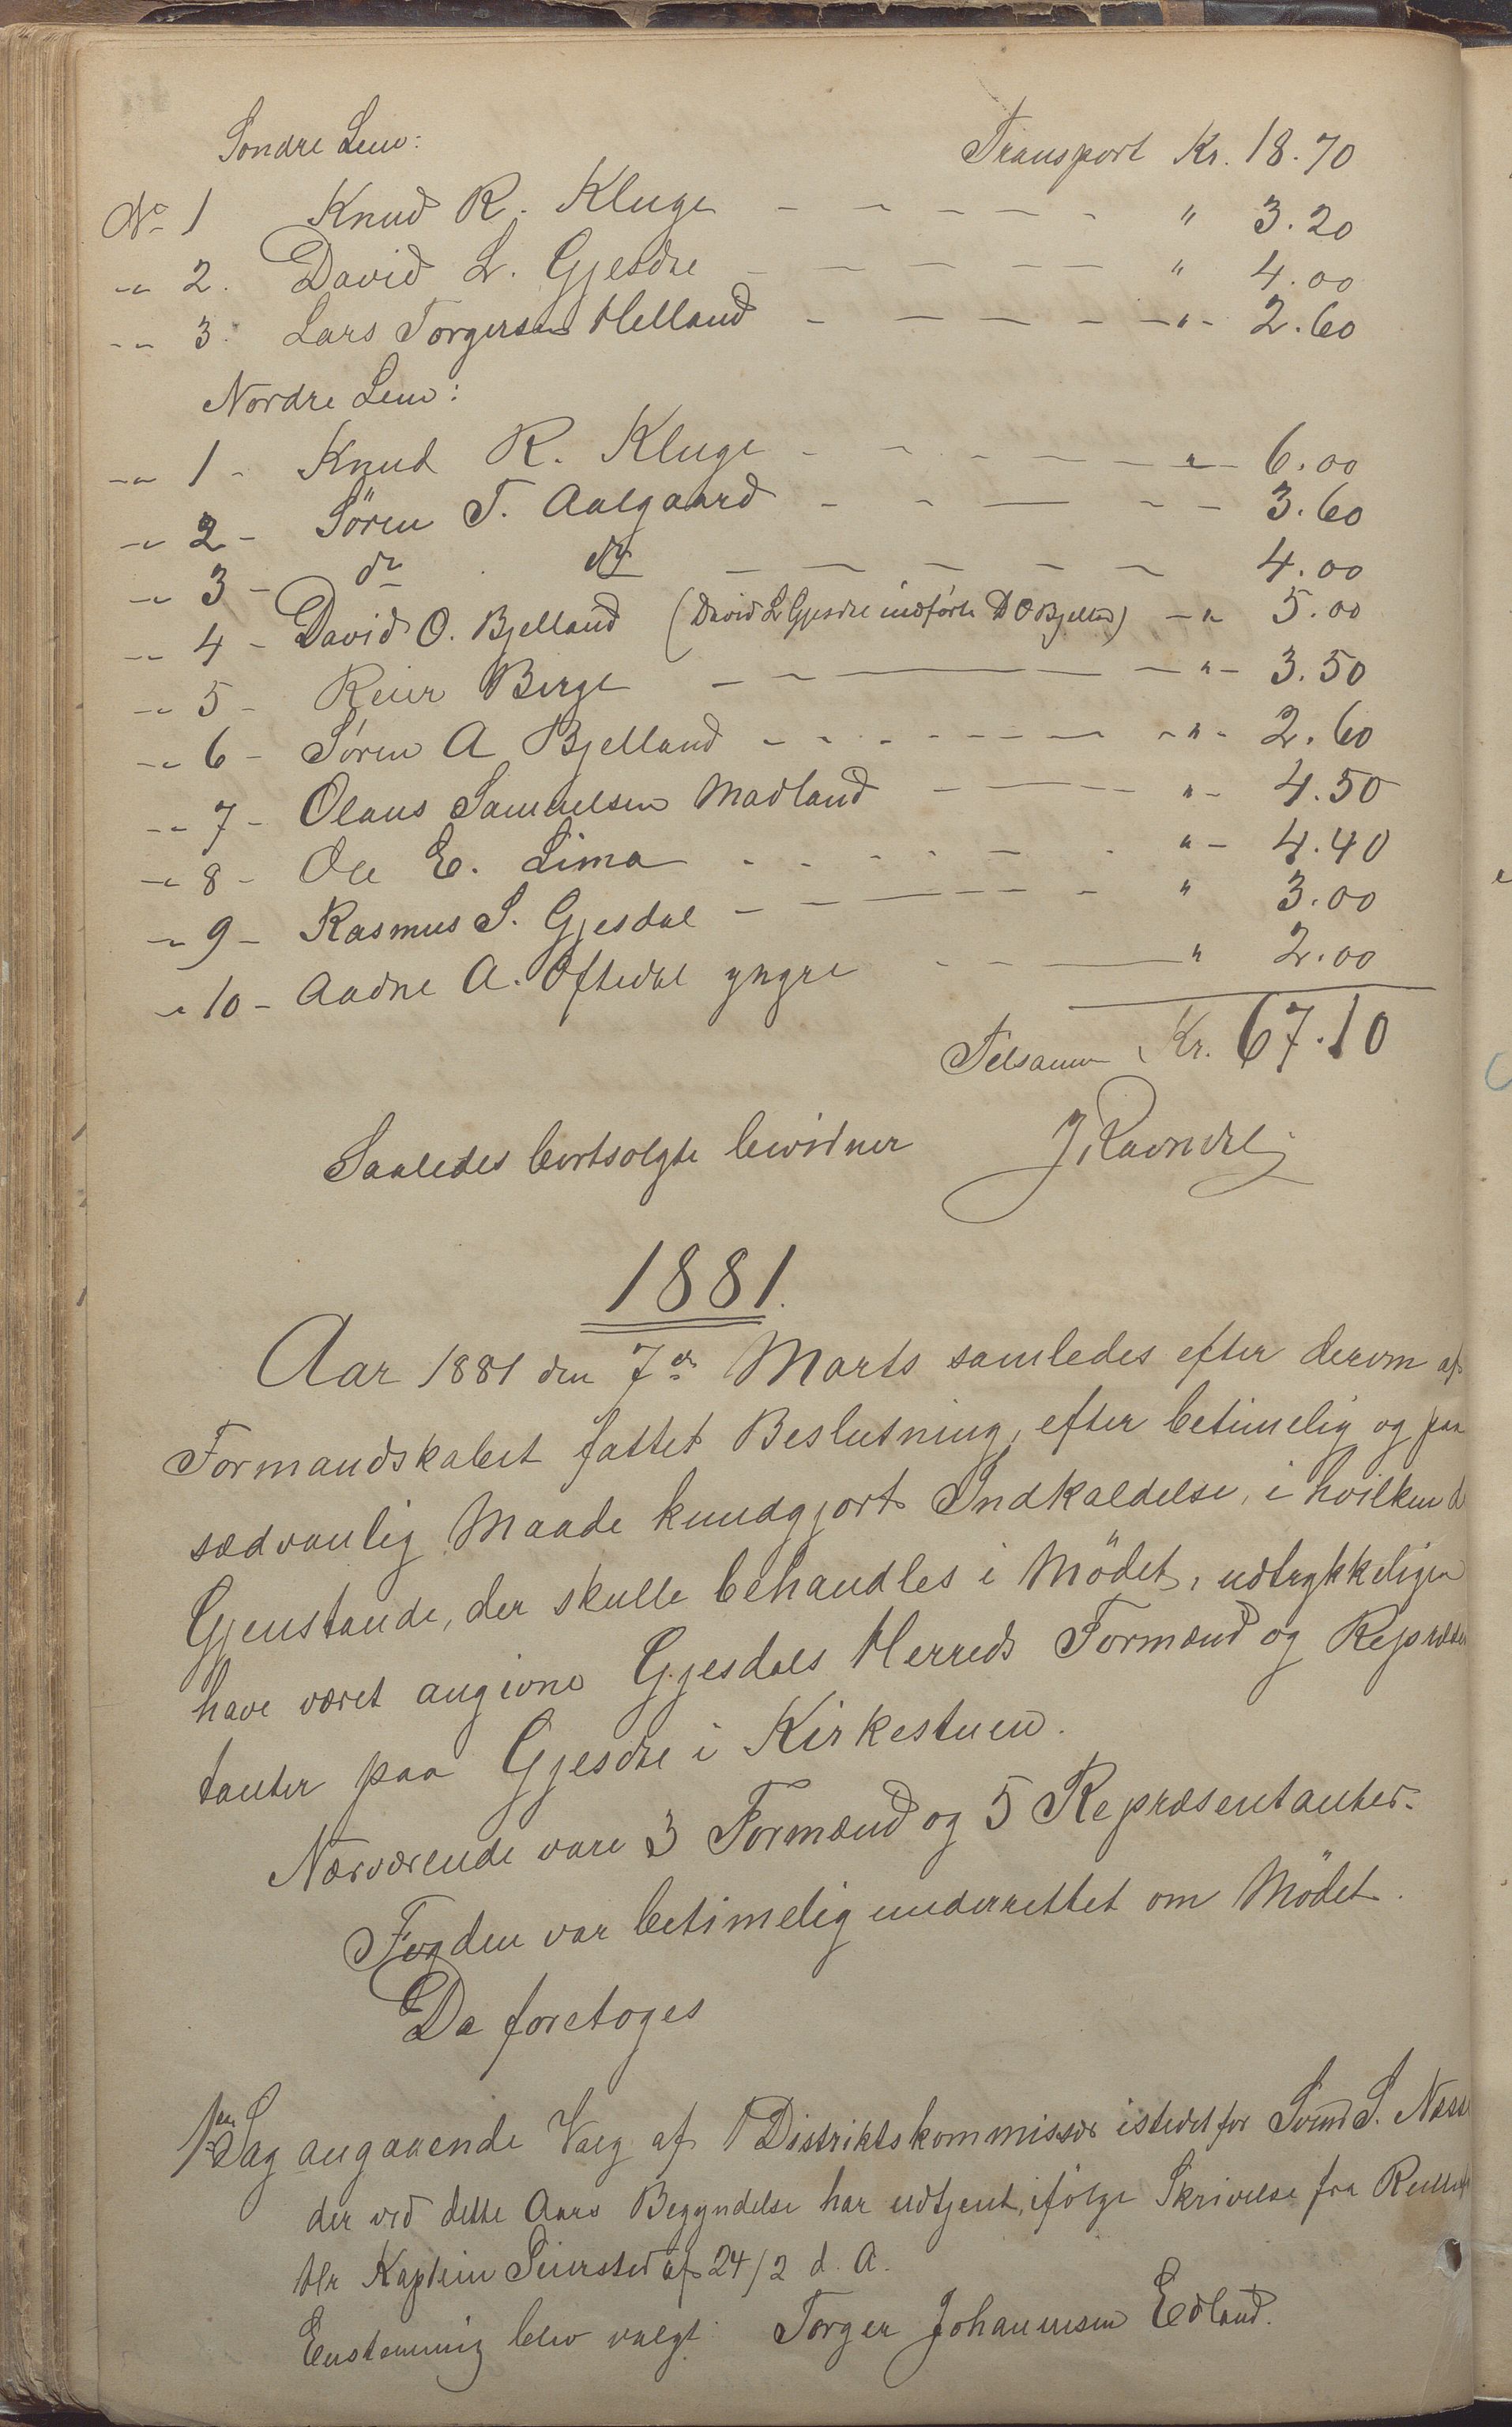 Søndre Lem: Transport Kr. 18.70
No 1 Knud R. Kluge - - - - - " 3.20
-"- 2. David L. Gjesdal - - - - - " 4.00
-"- 3. Lars Torgersen Helland - - - - -"- 2.60
Nordre Lem:
-"- 1 - Knud R. Kluge - - - - - -"- 6.00
-"- 2 - Sören T. Aalgaard - - - - - 3.60
-"- 3 - do do - - - - - 4.00
-"- 4 - David O. Bjelland (David L Gjesdal indförte D O Bjelland) -"- 5.00
-"- 5 - Reier Berge - - - -"- 3.50
-"- 6 - Søren A Bjelland - - - - - - -"- 2.60
-"- 7 - Olaus Samuelsen Madland - - - "- 4.50
-"- 8 - Ole E. Lima - - - - - - "- 4.40
-"- 9 - Rasmus S. Gjesdal - - - - - " 3.00
-"- 10 - Aadne A. Oftedal yngre - - - " 2.00
Tilsamm Kr. 67.10
Saaledes bortsolgte bevidner J. Ravndal
1881.
Aar 1881 den 7de Marts samledes efter derom af
Formandskabet fattet Beslutning, efter betimelig og paa
sædvanlig Maade kundgjort Indkaldelse, i hvilken d
Gjenstande, der skulle behandles i Mödet, udtrykkeligen
have været angivne Gjesdals Herreds Formænd og Repræsen
tanter paa Gjesdal i Kirkestuen.
Nærværende vare 3 Formænd og 5 Repræsentanter.
Fogden var betimelig underrettet om Mödet.
Da foretoges
1ste Sag angaaende Valg af 1 Distriktskommissær istedet for Svend S. Næss
der ved dette Aars Begyndelse har udtjent, ifølge Skrivelse fra
Hr Kaptein Seiersted af 24/2 d. A.
Enstemmig blev valgt: Torger Johannesen Edland.